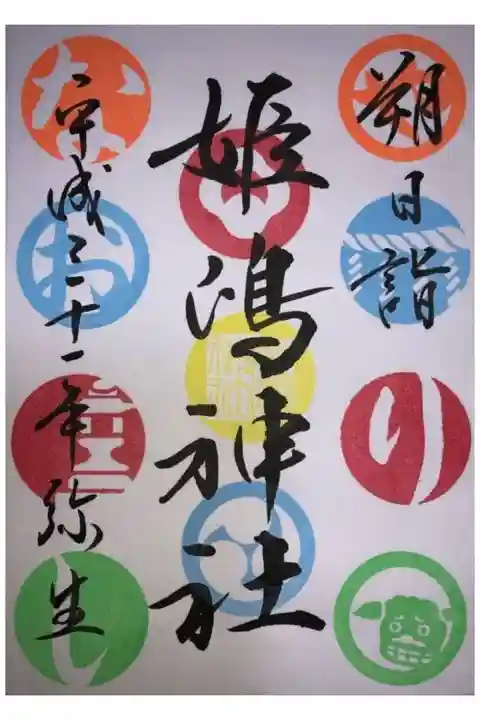 朔日詣
姫嶋神社
平成三十一年弥生
り
な
お
し